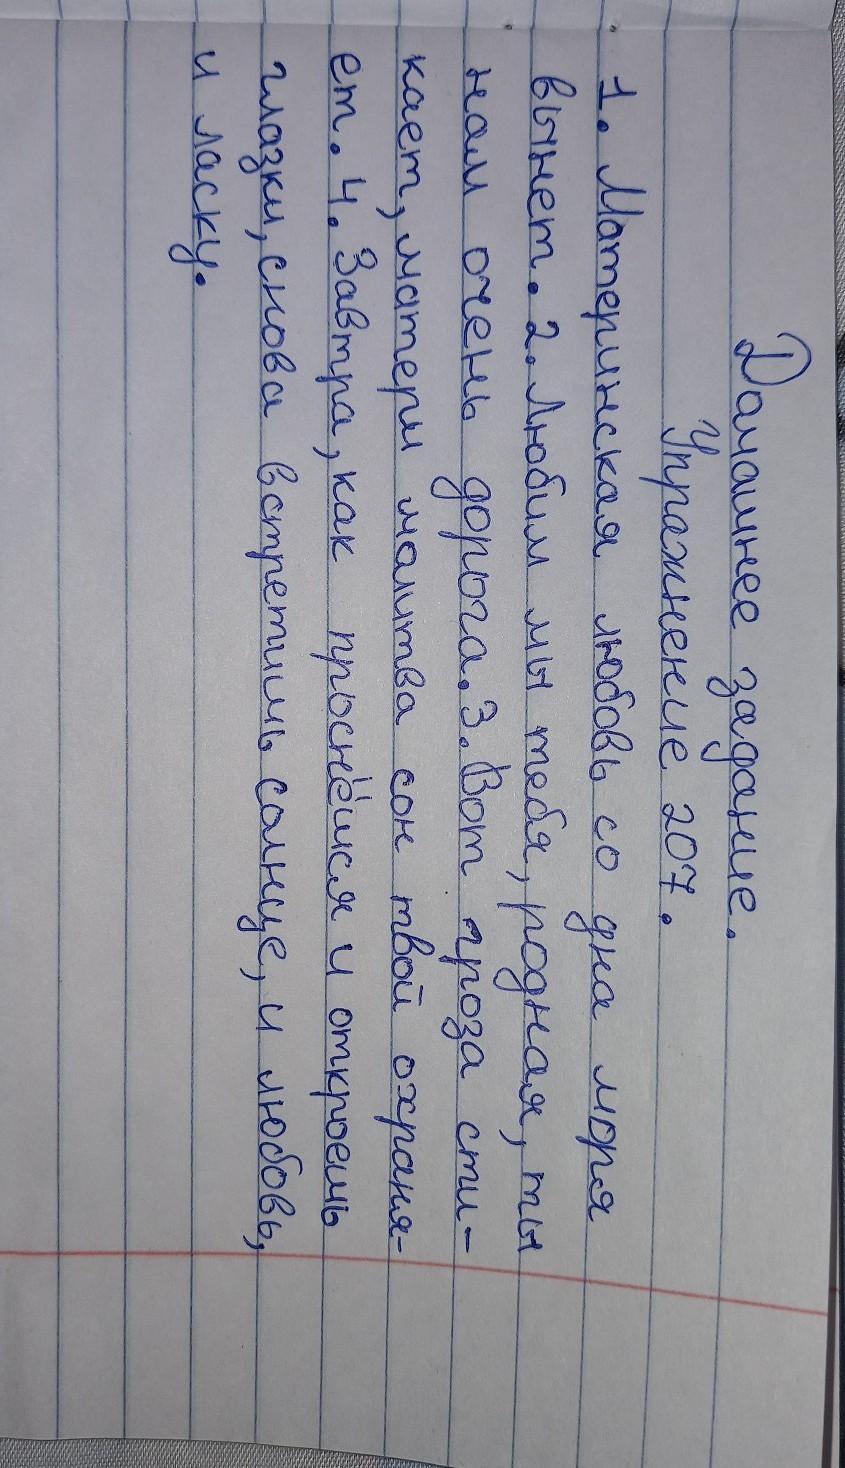 Домашнее задание.
Упражнение 207.
1. Материнская любовь со дна моря
вынет. 2. Любим мы тебя, родная, ты
нам очень дорога. 3. Вот гроза сти-
кает, матери молитва сон твой охраня-
ет. 4. Завтра, как проснёшься и откроешь
глазки, снова встретишь солнце, и любовь,
и ласку.